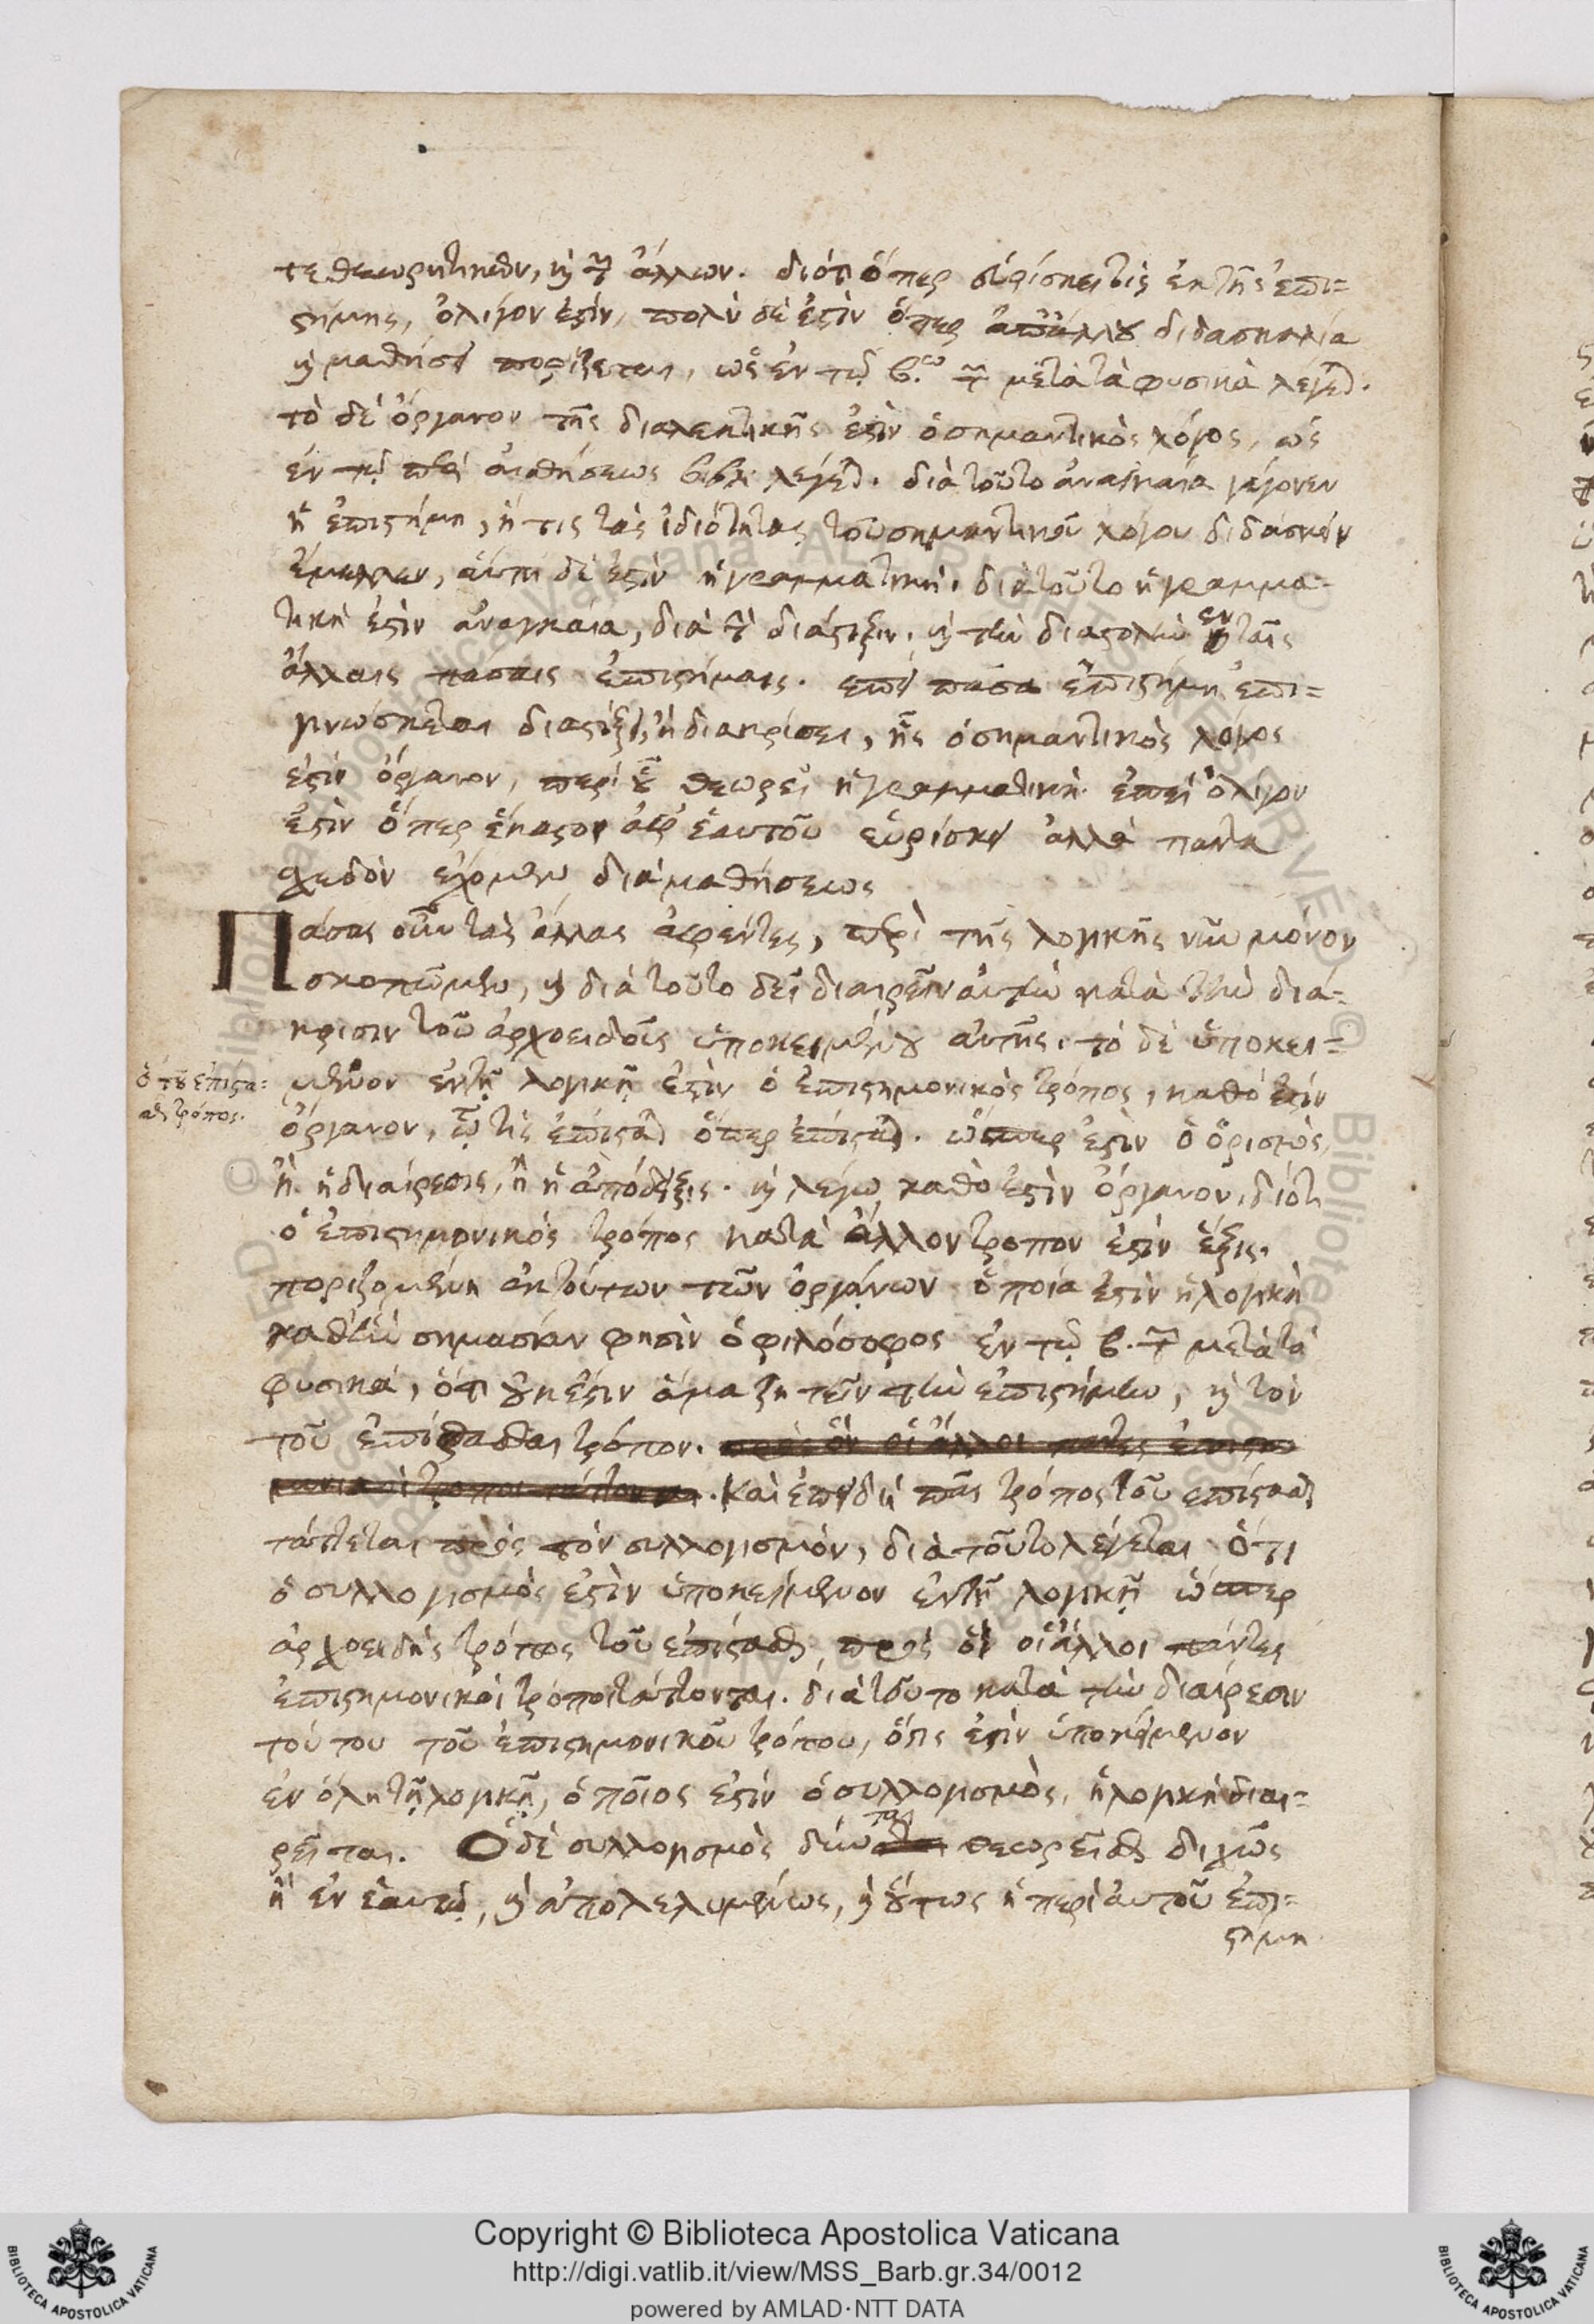 τε θεωρητικῶν, καὶ τῶν ἄλλων. διότι ὅπερ εὑρίσκει τὶς ἐκ τῆς ἐπι=
στήμης, ὀλίγον ἐστίν, πολὺ δὲ ἐστὶν ὅπερ ἀπὸ ἄλλου διδασκαλία
καὶ μαθήσει πορίζεται, ὡς ἐν τῷ β.ῳ τῶν μετὰ τὰ φυσικὰ λέγεται.
τὸ δὲ ὄργανον τῆς διαλεκτικῆς ἐστὶν ὁ σημαντικὸς λόγος, ὡς
ἐν τῷ περὶ αἰσθήσεως λέγεται. διὰ τοῦτο ἀναγκαία γέγονεν
ἡ ἐπιστήμη, ἥ τις τὰς ἰδιότητας τοῦ σημαντικοῦ λόγου διδάσκειν
ἔμελλεν, αὕτη δὲ ἐστὶν ἡ γραμματική. διὰ τοῦτο ἡ γραμμα=
τικὴ ἐστὶν ἀναγκαία, διὰ τὴν καὶ τὴν διαστολὴν ἐν ταῖς
ἄλλαις πάσαις ἐπιστήμαις. ἐπεὶ πᾶσα ἐπιστήμη ἐπι=
γνώσκεται ἢ διακρίσει, ἧς ὁ σημαντικὸς λόγος
ἐστὶν ὄργανον, περὶ οὗ θεωρεῖ ἡ γραμματική. ἐπεὶ ὀλίγον
ἐστὶν ὅπερ ἕκαστος ἀφ' ἑαυτοῦ εὑρίσκει ἀλλὰ πάντα
σχεδὸν ἔχομεν διὰ μαθήσεως
Πάσας οὖν τὰς ἄλλας ἀφέντες, περὶ τῆς λογικῆς νῦν μόνον
σκοπῶμεν, καὶ διὰ τοῦτο δεῖ διαιρεῖν αὐτὴν κατὰ τὴν διά=
κρισιν τοῦ ἀρχοειδοῦς ὑποκειμένου αὐτῆς. τὸ δὲ ὑποκεί=
ὁ τοῦ ἐπίστα=
σθαι τρόπος.
μενον ἐν τῇ λογικῇ ἐστὶν ὁ ἐπιστημονικὸς τρόπος, καθό ἐστιν
ὄργανον, ᾧ τὶς ἐπίσταται ὅπερ ἐπίσταται. ὥσπερ ἐστὶν ὁ ὁρισμὸς,
ἢ ἡ διαίρεσις, ἢ ἡ ἀπόδειξις. καὶ λέγω καθὸ ἐστὶν ὄργανον, διότι
ὁ ἐπιστημονικὸς τρόπος κατὰ ἄλλον τρόπον ἐστὶν ἕξις.
ποριζομένη ἐκ τούτων τῶν ὀργάνων ὁποία ἐστὶν ἡ λογικὴ
καθ' ἣν σημασίαν φησὶν ὁ φιλόσοφος ἐν τῷ β. τῶν μετὰ τὰ
φυσικά, ὅτι οὐκ ἐστιν ἅμα ζητεῖν τὴν ἐπιστήμην, καὶ τὸν
τοῦ ἐπίστασθαι τρόπον. πρὸς ὃν οἱ ἄλλοι πάντες ἐπιστη
μονικοὶ τρόποι τάττονται. Καὶ ἐπειδὴ πᾶς τρόπος τοῦ ἐπίστασθαι
τάττεται πρὸς τὸν συλλογισμόν, διὰ τοῦτο λέγεται ὅτι
ὁ συλλογισμὸς ἐστὶν ὑποκείμενον ἐν τῇ λογικῇ ὥσπερ
ἀρχοειδὴς τρόπος τοῦ ἐπίστασθαι, πρὸς ὃν οἱ ἄλλοι πάντες
ἐπιστημονικοὶ τρόποι τάττονται. διὰ τοῦτο κατὰ τὴν διαίρεσιν
τούτου τοῦ ἐπιστημονικοῦ τρόπου, ὅστις ἐστὶν ὑποκείμενον
ἐν ὅλῃ τῇ λογικῇ, ὁποῖος ἐστὶν ὁ συλλογισμὸς, ἡ λογικὴ διαι=
ρεῖται. Ὁ δὲ συλλογισμὸς δύναται θεωρεῖσθαι διχῶς
ἢ ἐν ἑαυτῷ, καὶ ἀπολελυμένως, καὶ οὕτως ἡ περὶ αὐτοῦ ἐπι=
στήμη
Copyright © Biblioteca Apostolica Vaticana
http://digi.vatlib.it/view/MSS_Barb.gr.34/0012
powered by AMLAD·NTT DATA